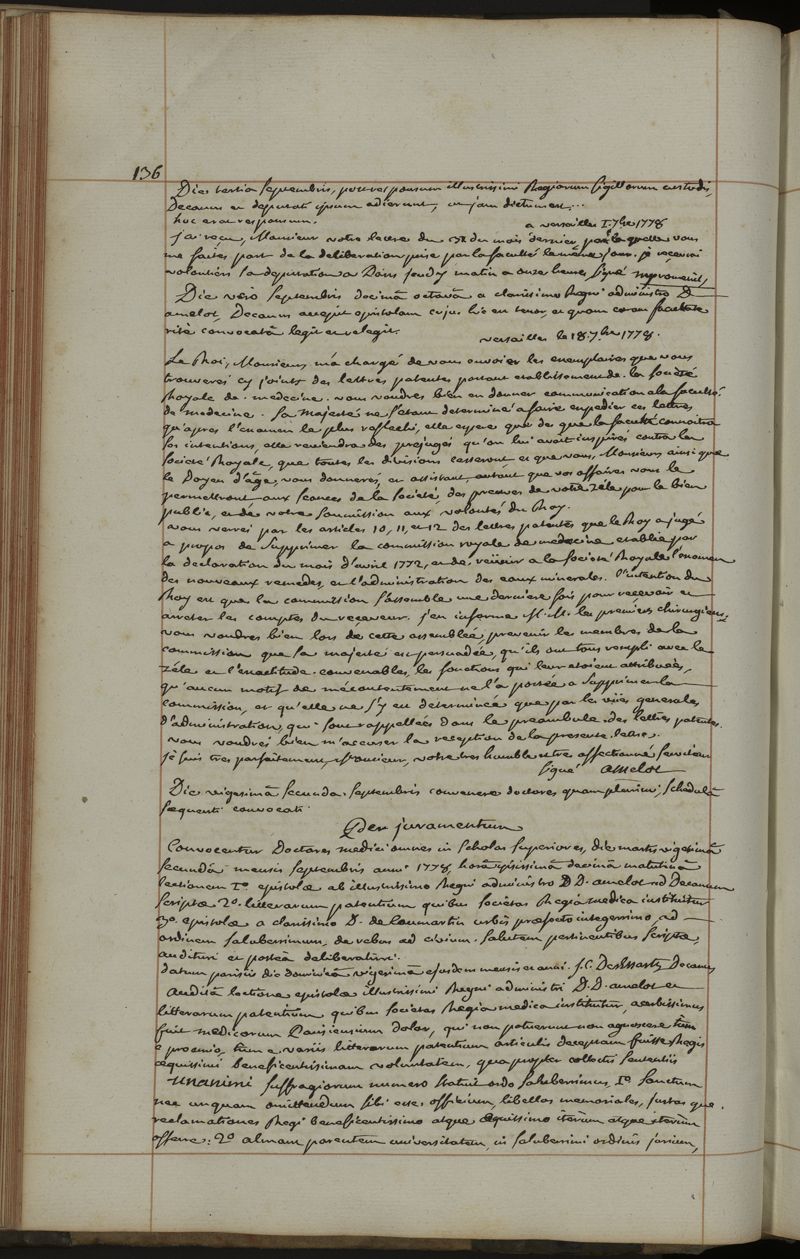 136
Die tertia Septembris, post responsum illustrissimi Regiorum Sigillorum custodis,
Decanus et deputati ipsum adierunt, ut jam dictum est...
hoc erat responsum. a versailles 1. 7bre 1778
J'ai reçu, Monsieur votre lettre du 31 du mois dernier par laquelle vous
me faites part de la deliberation prise par la faculté le même jour. je recevrai
volontiers sa deputation a Paris jeudy matin a onze heures signé Miromenil,
Die vero Septembris decimâ octavâ a clarissimo Regni administro D.
amelot, Decanus accepit epistolam cujus hic en tenor, et quam coram facultate
rite convocatâ legit et relegit. versailles le 18. 7bre 1778.
Le Roi, Monsieur, m'a chargé de vous envoier les exemplaires que vous
trouverés cy joints des lettres patentes portant etablissement de la société
Royale de medecine. vous voudrés bien en donner communication a la faculté
de medecine. Sa Majesté ne s'etant determiné a faire expedier ces lettres
qu'après l'examen le plus reflechi, elle espere que dès que la faculté connoitra
ses intentions, elle reviendra des prejugés qu'on lui avait inspirés contre la
société Royale, que toutes les divisions cesseront et que vous, Monsieur, ainsi que
le Doyen d'âge, vous donnerés, en assistant, autant que vos affaires vous le
permettront aux seances de la société, des preuves de votre zéle pour le bien
public, et de votre soumission aux volontés du Roy.
vous verrés par les articles 10, 11, et 12 des lettres patentes que le Roy a jugé
a propos de supprimer la commission royale de medecine etablie par
la declaration du mois d'avril 1772, et de réünir a la société Royale l'examen
des nouveaux remedes, et l'administration des eaux minerales. l'intention du
Roy est que la commission s'assemble une derniere fois pour recevoir et
arreter les comptes du receveur. j'en informe M.M. les premiers chirurgiens.
vous voudrés bien lors de cette assemblée, prevenir les membres de la
commission que sa majesté est persuadée, qu'ils ont tous rempli avec le
zéle et l'exactitude convenables, les fonctions qui leur etoient attribuées,
qu'aucun motif de mécontentement ne l'a portée a supprimer la
commission, et qu'elle ne s'y est determinée que par les vües generales
d'administration, qui sont rappellées dans le preambule des lettres patentes.
vous voudrés bien m'accuser la reception de la presente lettre.
je suis tres parfaitement, Monsieur, votre tres humble et tres affectionné serviteur
signé amelot
Die vigesimâ secundâ Septembris convenere doctores quamplurimi, schedulâ
sequenti convocati.
Per juramentum
Convocentur Doctores medici omnes in scholas superiores, die martis vigesimâ
secundâ mensis septembris anni 1778, horâ ipsissimâ decimâ matutinâ
lectionem 1o. epistolæ ab illustrissimo Regni administro D D. amelot ad Decanum
scriptæ 2o. litterarum patentium quibus societas Regia medica instituitur
3o. epistolæ a clarissimo D. de Caumartin urbis præfecto integerrimo, ad
ordinem saluberrimum, de rebus ad civium salutem pertinentibus scriptæ,
audituri et posteà deliberaturi.
datum parisiis die dominicâ vigesimâ ejusdem mensis et anni. J. C. DesEssartz Decanus
Auditâ lectione epistolæ illustrissimi Regni administri D.D. amelot et
litterarum patentium quibus societas Regia medica instituitur, acerbissimus
fuit medicorum Parisiensium dolor, qui non potuerunt non agnoscere tùm
e proemio, tùm e variis litterarum patentium articulis deceptam fuisse Regis
æquissimi beneficentissimam voluntatem, quapropter collectis sententiis
unanimi suffragiorum numero statuit ordo saluberrimus, 1o. sanctum
nec unquam omittendum sibi esse officium, libellos memoriales, justas que
reclamationes Regi beneficentissimo atque æquissimo iterum atque iterùm
offerre: 2o. almam parentem universitatem, in saluberrimi ordinis jurium,